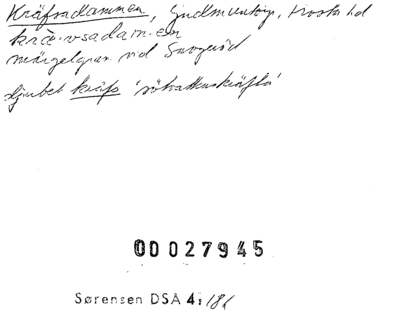 Kräfsadammen, Gudmuntorp, Frosta hd
krè·vsadam·en
märgelgrav vid Snogeröd
djuret kräfs 'sötvattenskräfta'
00027945
Sørensen DSA 4:181